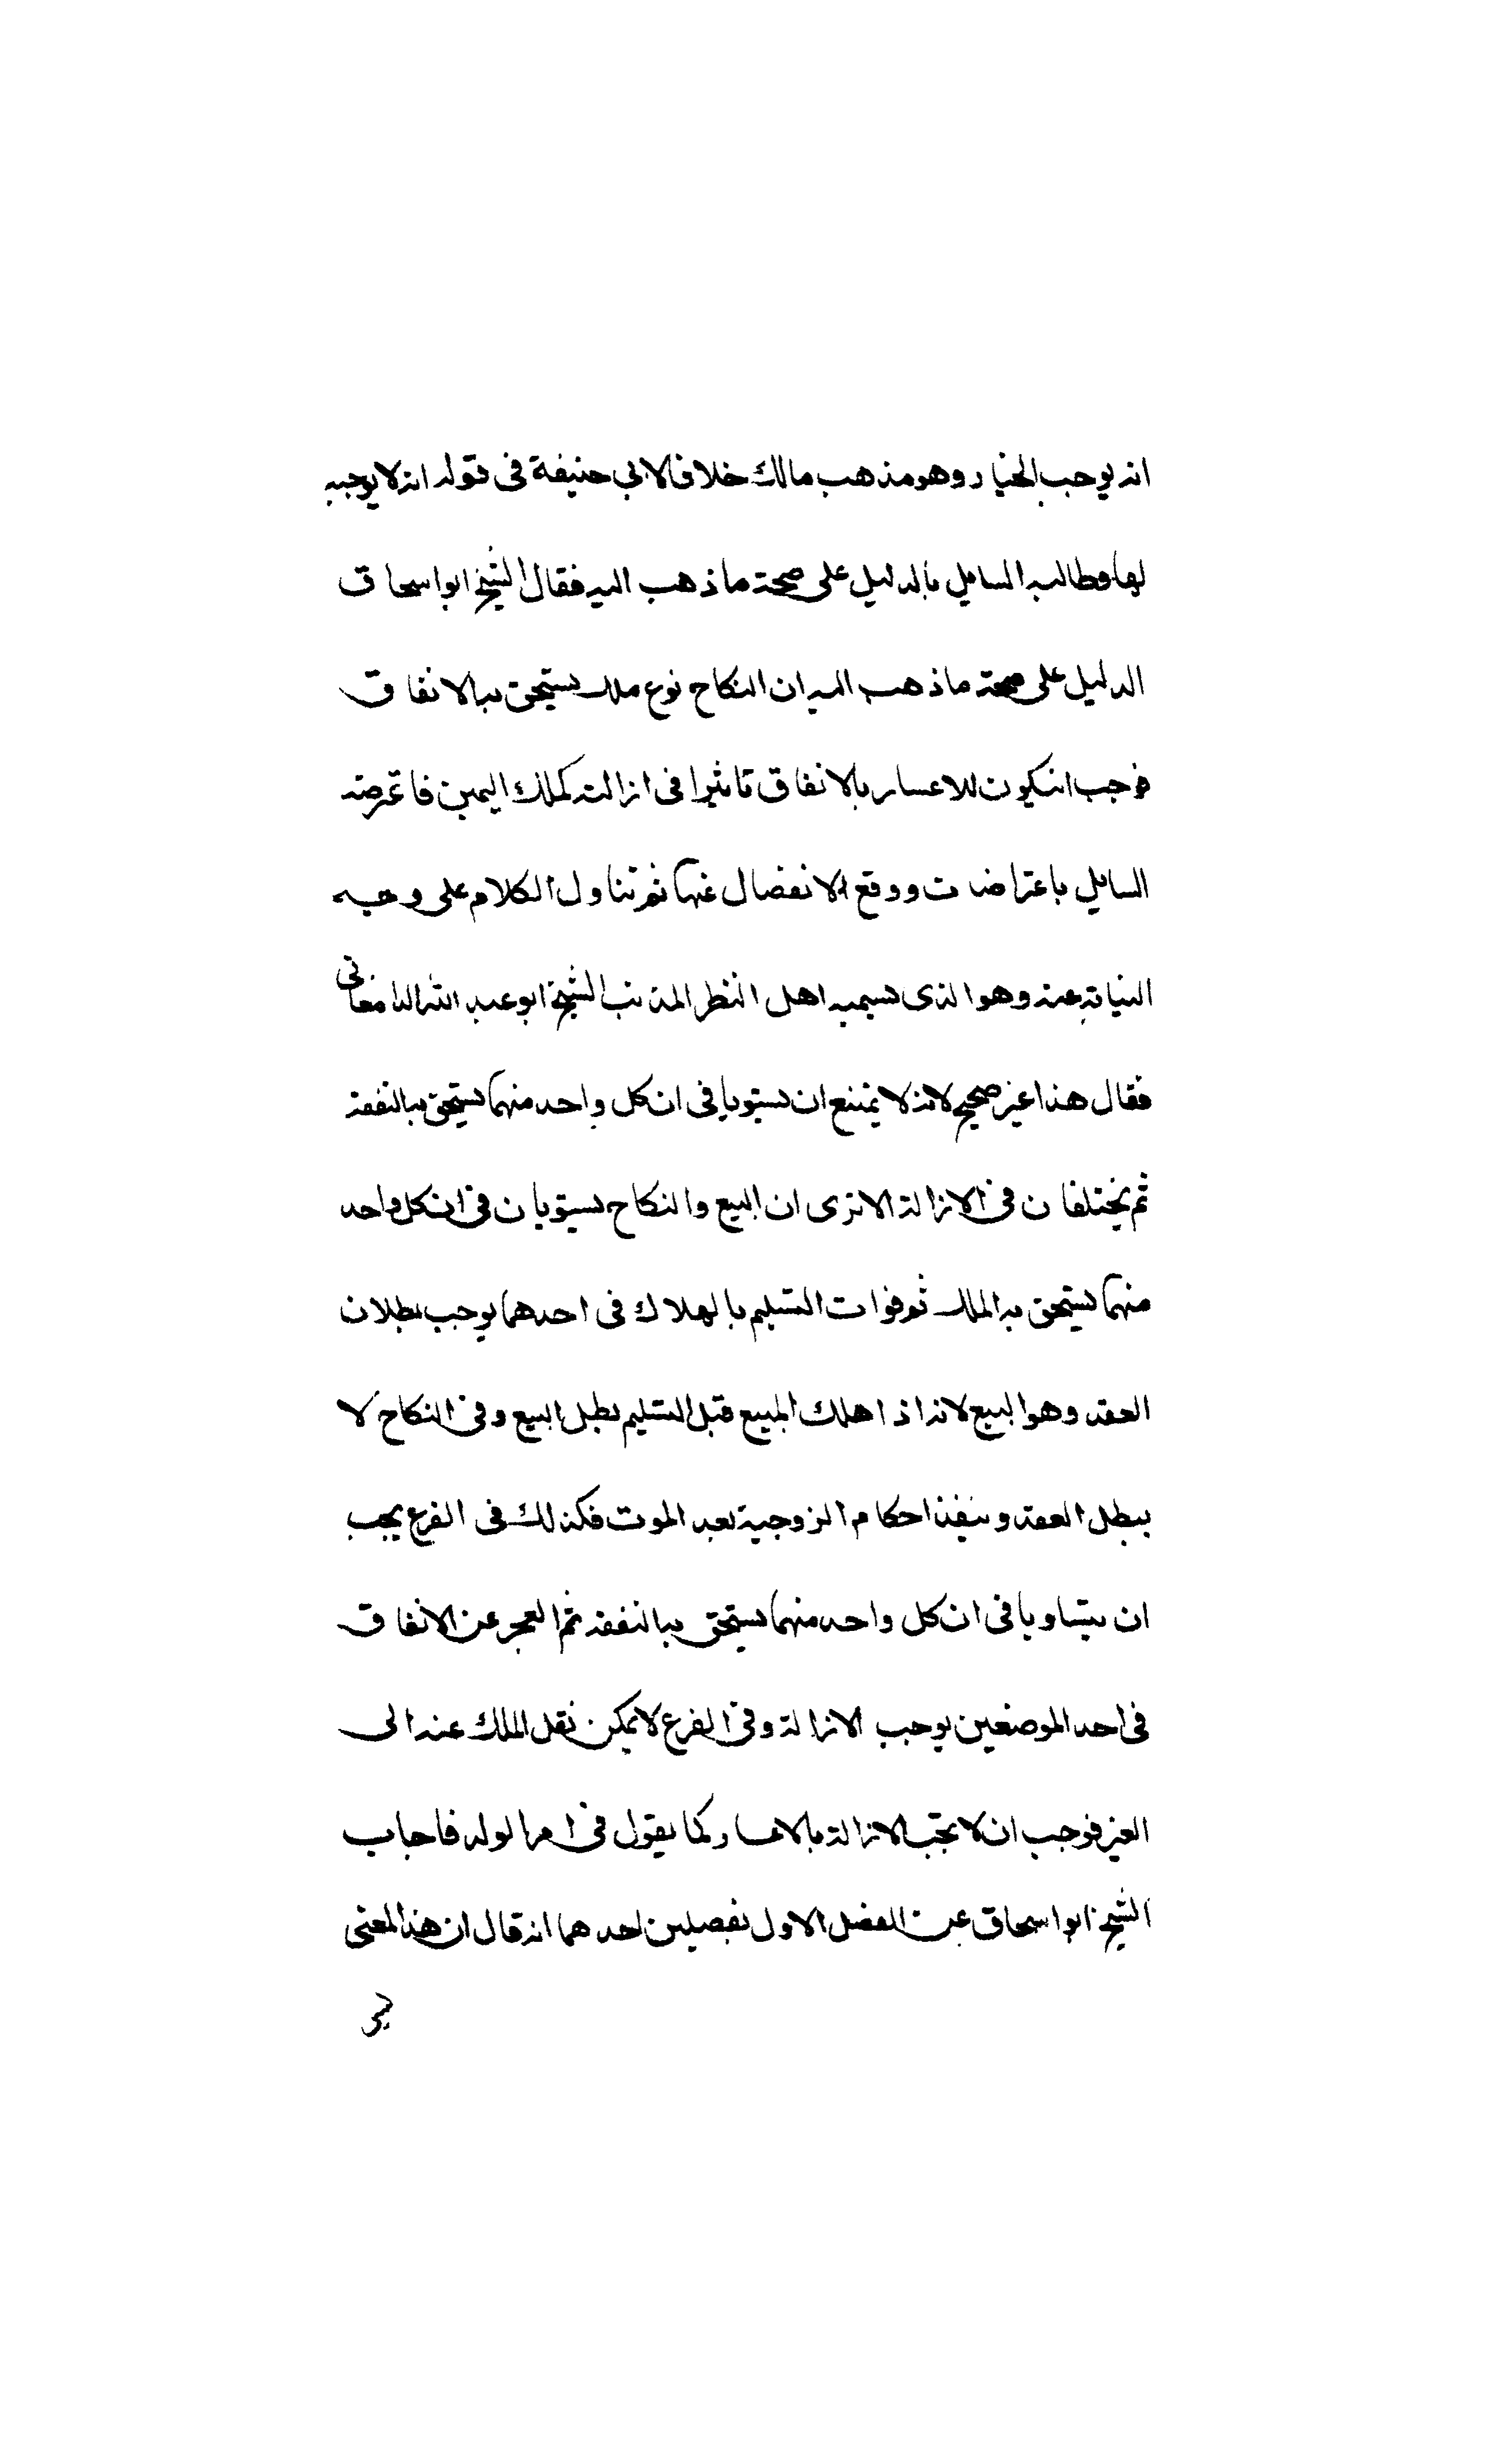 انه يوجب الخيار وهو مذهب مالك خلافا لابي حنيفة في قوله انه لا يوجبه
لها وطالبه السايل بالدليل على صحة ما ذهب اليه فقال الشيخ ابو اسحاق
الدليل على صحة ما ذهب اليه ان النكاح نوع ملك يستحق به الانفاق
فوجب ان يكون للاعسار بالانفاق تاثيرا في ازالته كملك اليمين فاعترضه
السايل باعتراضات ووقع الانفصال عنها ثم تناول الكلام على وجه
النيابة عنه وهو الذي يسميه اهل النظر المذنب الشيخ ابو عبد الله الدامغاني
فقال هذا غير صحيح لانه لا يمتنع ان يستويا في ان كل واحد منهما يستحق به النفقة
ثم يختلفان في الازالة الا ترى ان البيع والنكاح يستويان في ان كل واحد
منهما يستحق به الملك ثم فوات التسليم بالهلاك في احدهما يوجب بطلان
العقد وهو البيع لانه اذا هلك المبيع قبل التسليم بطل البيع وفي النكاح لا
يبطل العقد وينفذ احكام الزوجية بعد الموت فكذلك في الفرع يجب
ان يتساويا في ان كل واحد منهما يستحق به النفقة ثم العجز عن الانفاق
في احد الموضعين يوجب الازالة وفي الفرع لا يمكن نقل الملك عنه الى
الغير فوجب ان لا تجب الازالة بالاعسار كما يقول في ام الولد فاجاب
الشيخ ابو اسحاق عن الفصل الاول بفصلين احدهما انه قال ان هذا المعنى